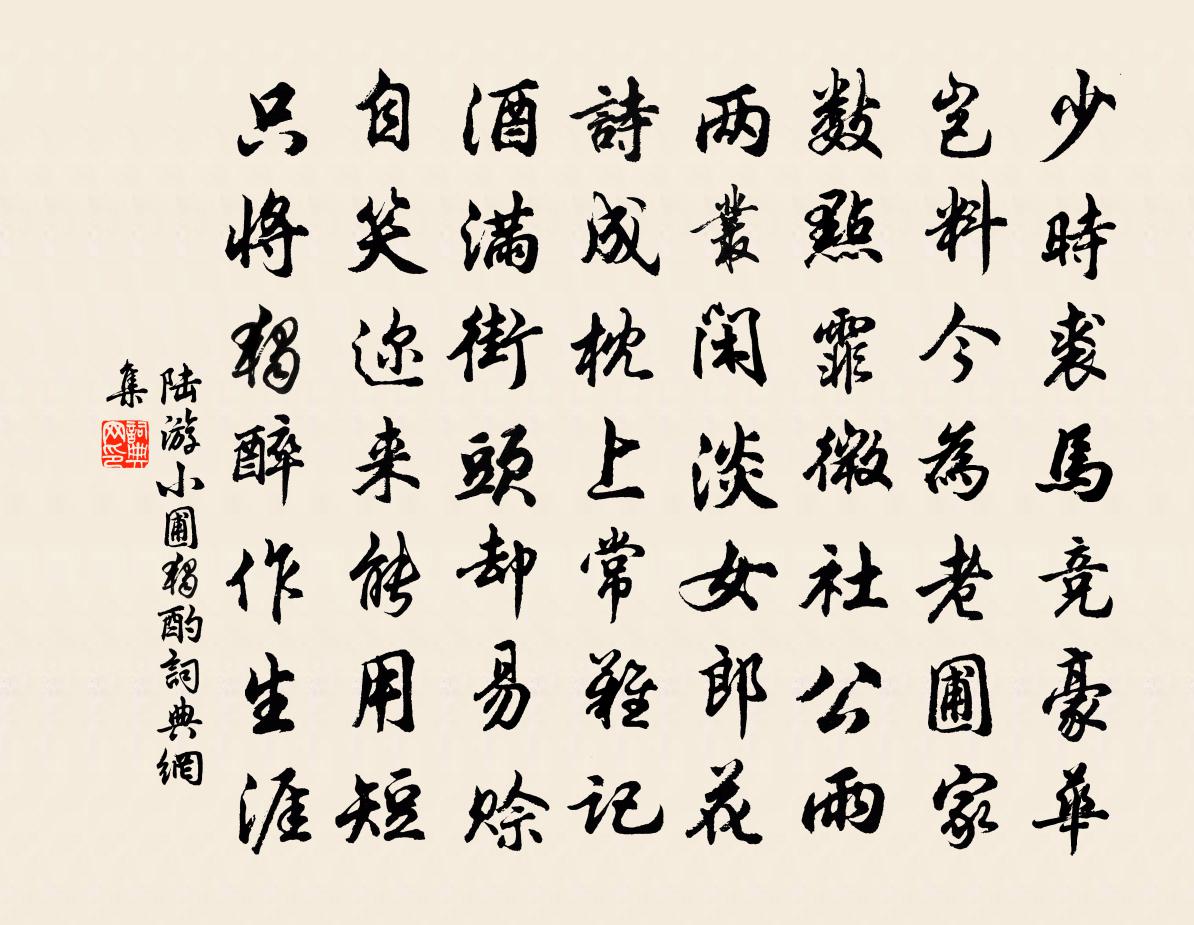 少時裘馬競豪華
豈料今為老圃家
數點霏微社公雨
兩叢閑淡女郎花
詩成枕上常難記
酒滿街頭却易賒
自笑邇来能用短
只將獨醉作生涯
陸游小圃獨酌詞典網
集
詞典
网印